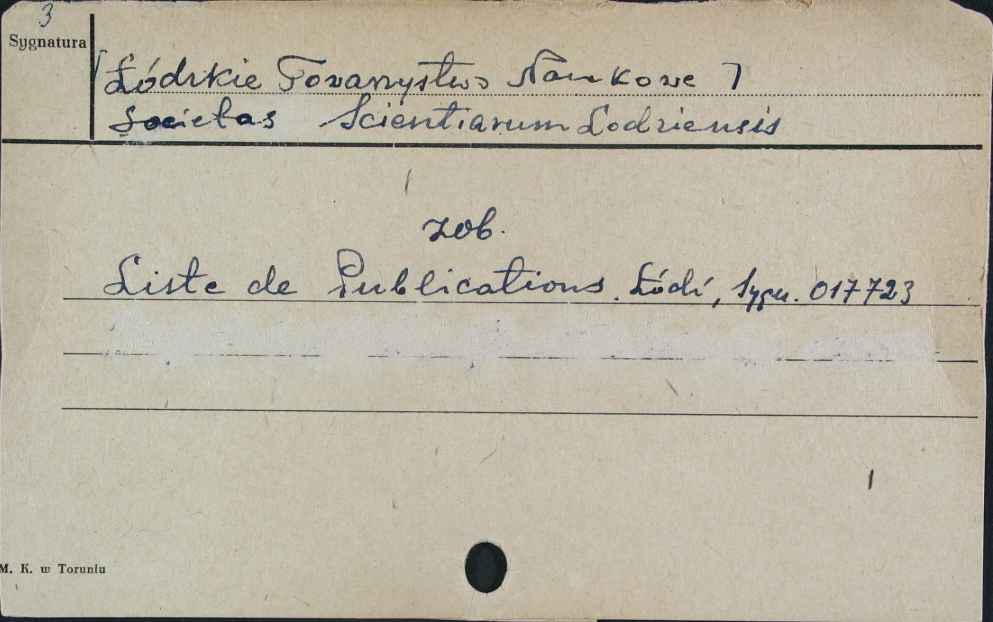 3
Sygnatura
[Łódzkie Towarzystwo Naukowe]
Societas Scientiarum Lodziensis
zob.
Liste de Publications. Łódź, Sygn. 017723
M. K. w Toruniu